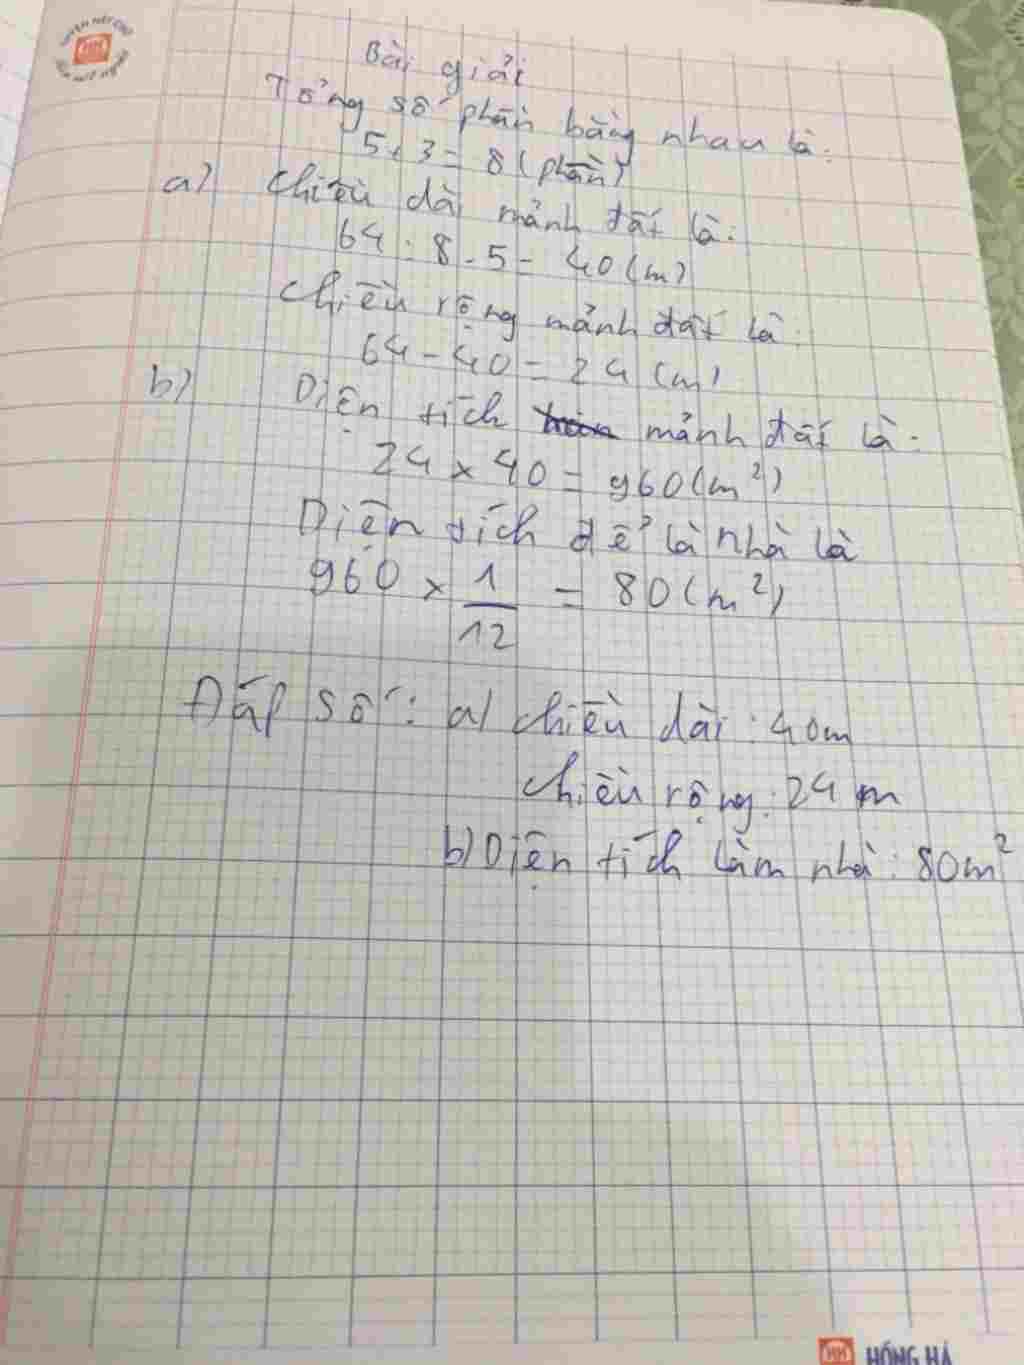 Bài giải
Tổng số phần bằng nhau là:
5+3=8(phần)
a) chiều dài mảnh đất là:
64:8.5=40(m)
chiều rộng mảnh đất là:
64-40=24(m)
b) Diện tích mảnh đất là:
24x40=960(m²)
Diện tích để là nhà là
960 x 1/12 = 80(m²)
Đáp số: a) chiều dài: 40m
chiều rộng: 24m
b) Diện tích làm nhà: 80m²
HH
HH HỒNG HÀ